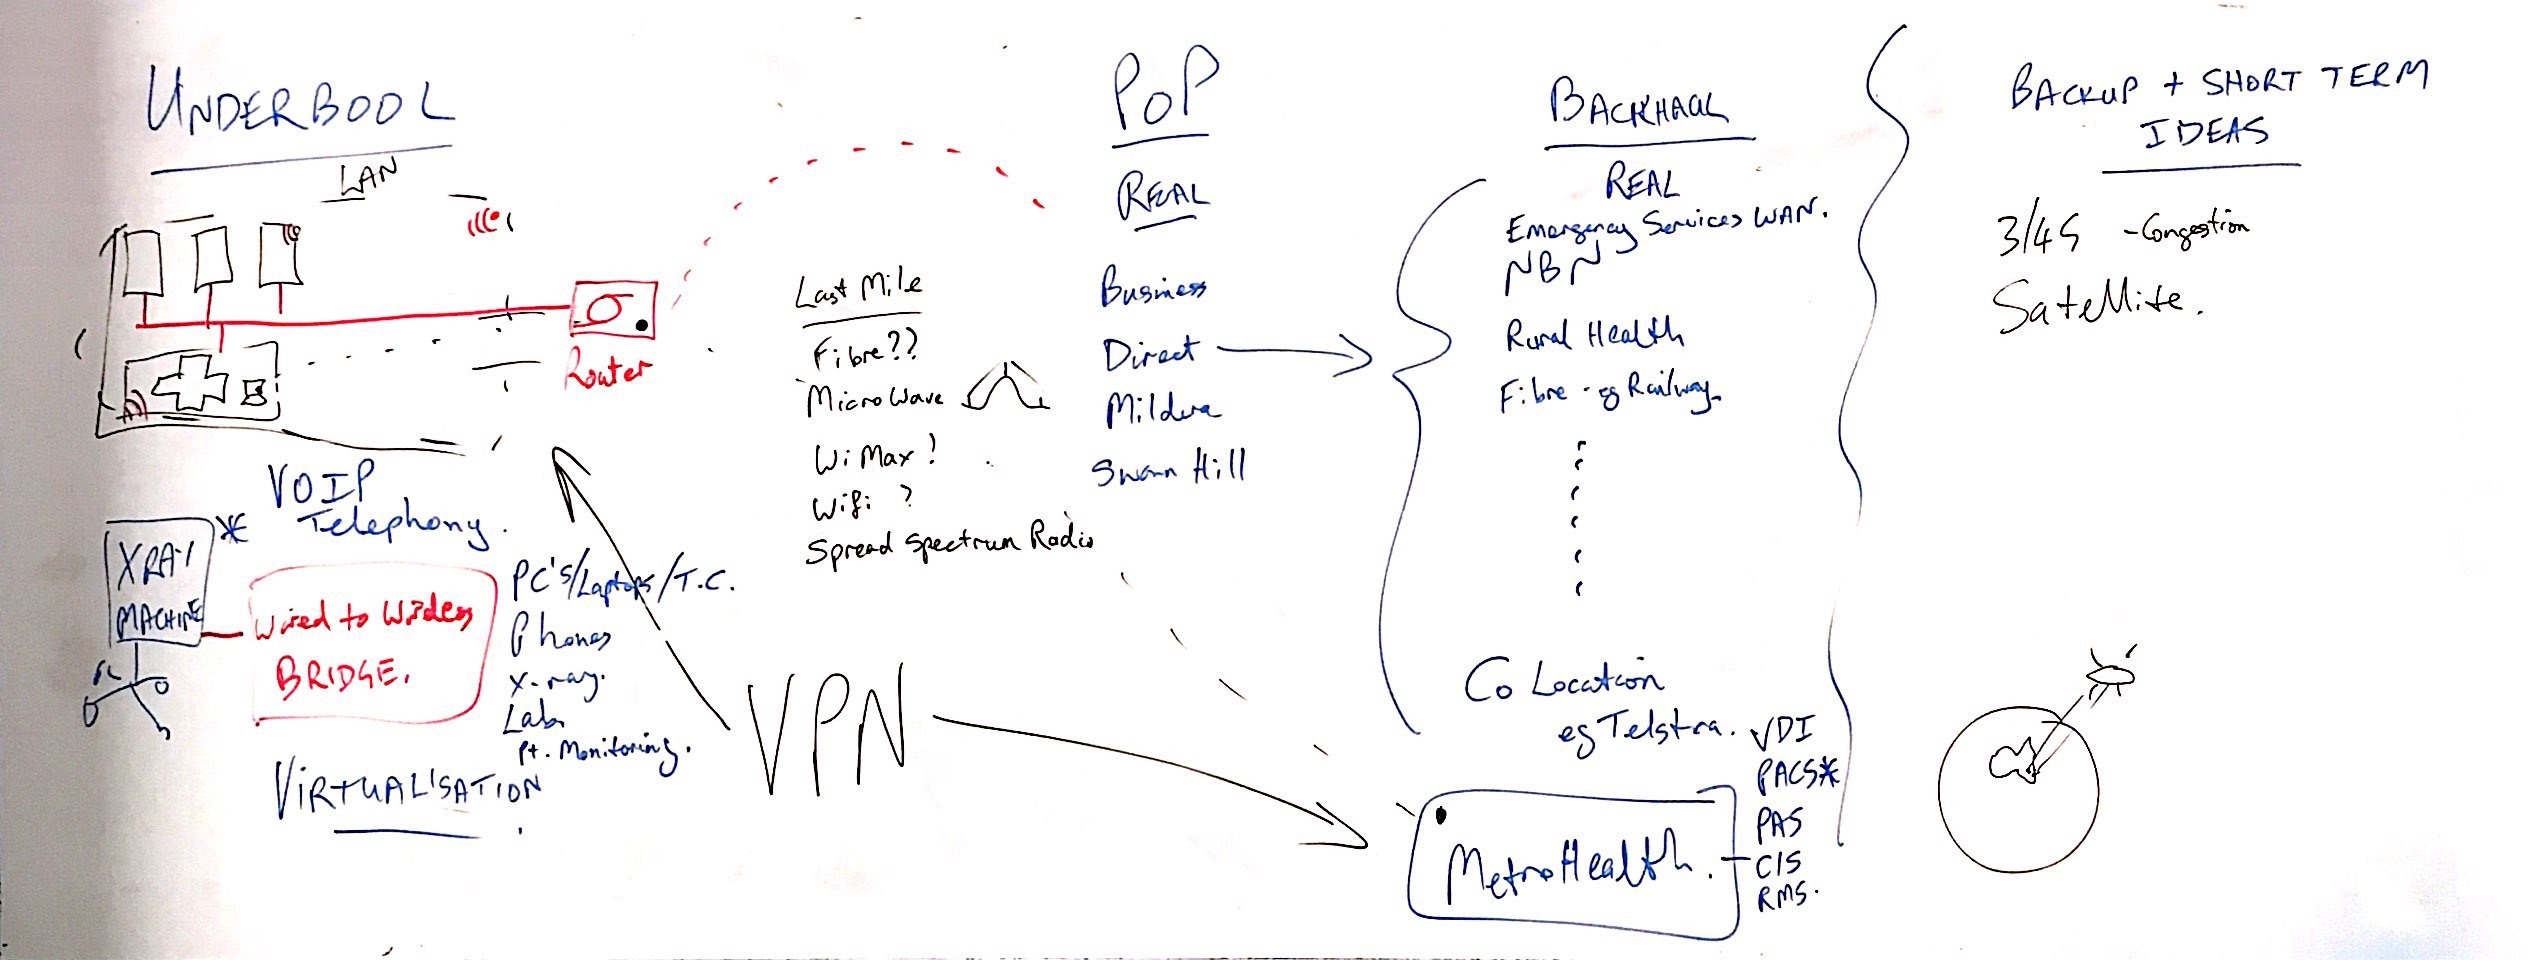 UNDERBOOL
LAN
Router
VOIP
Telephony.
XRAY
MACHINE
*
Wired to Wireless
BRIDGE.
PC's/Laptops/T.C.
Phones
X-ray.
Labs
Pt. Monitoring.
VIRTUALISATION
VPN
Last Mile
Fibre??
MicroWave
WiMax!
Wifi ?
Spread Spectrum Radio
PoP
REAL
Business
Direct
Mildura
Swan Hill
BACKHAUL
REAL
Emergency Services WAN.
NBN
Rural Health
Fibre - eg Railway.
Co Location
eg Telstra.
MetroHealth.
VDI
PACS*
PAS
CIS
RMS.
BACKUP + SHORT TERM
IDEAS
3/4G - Congestion
Satellite.